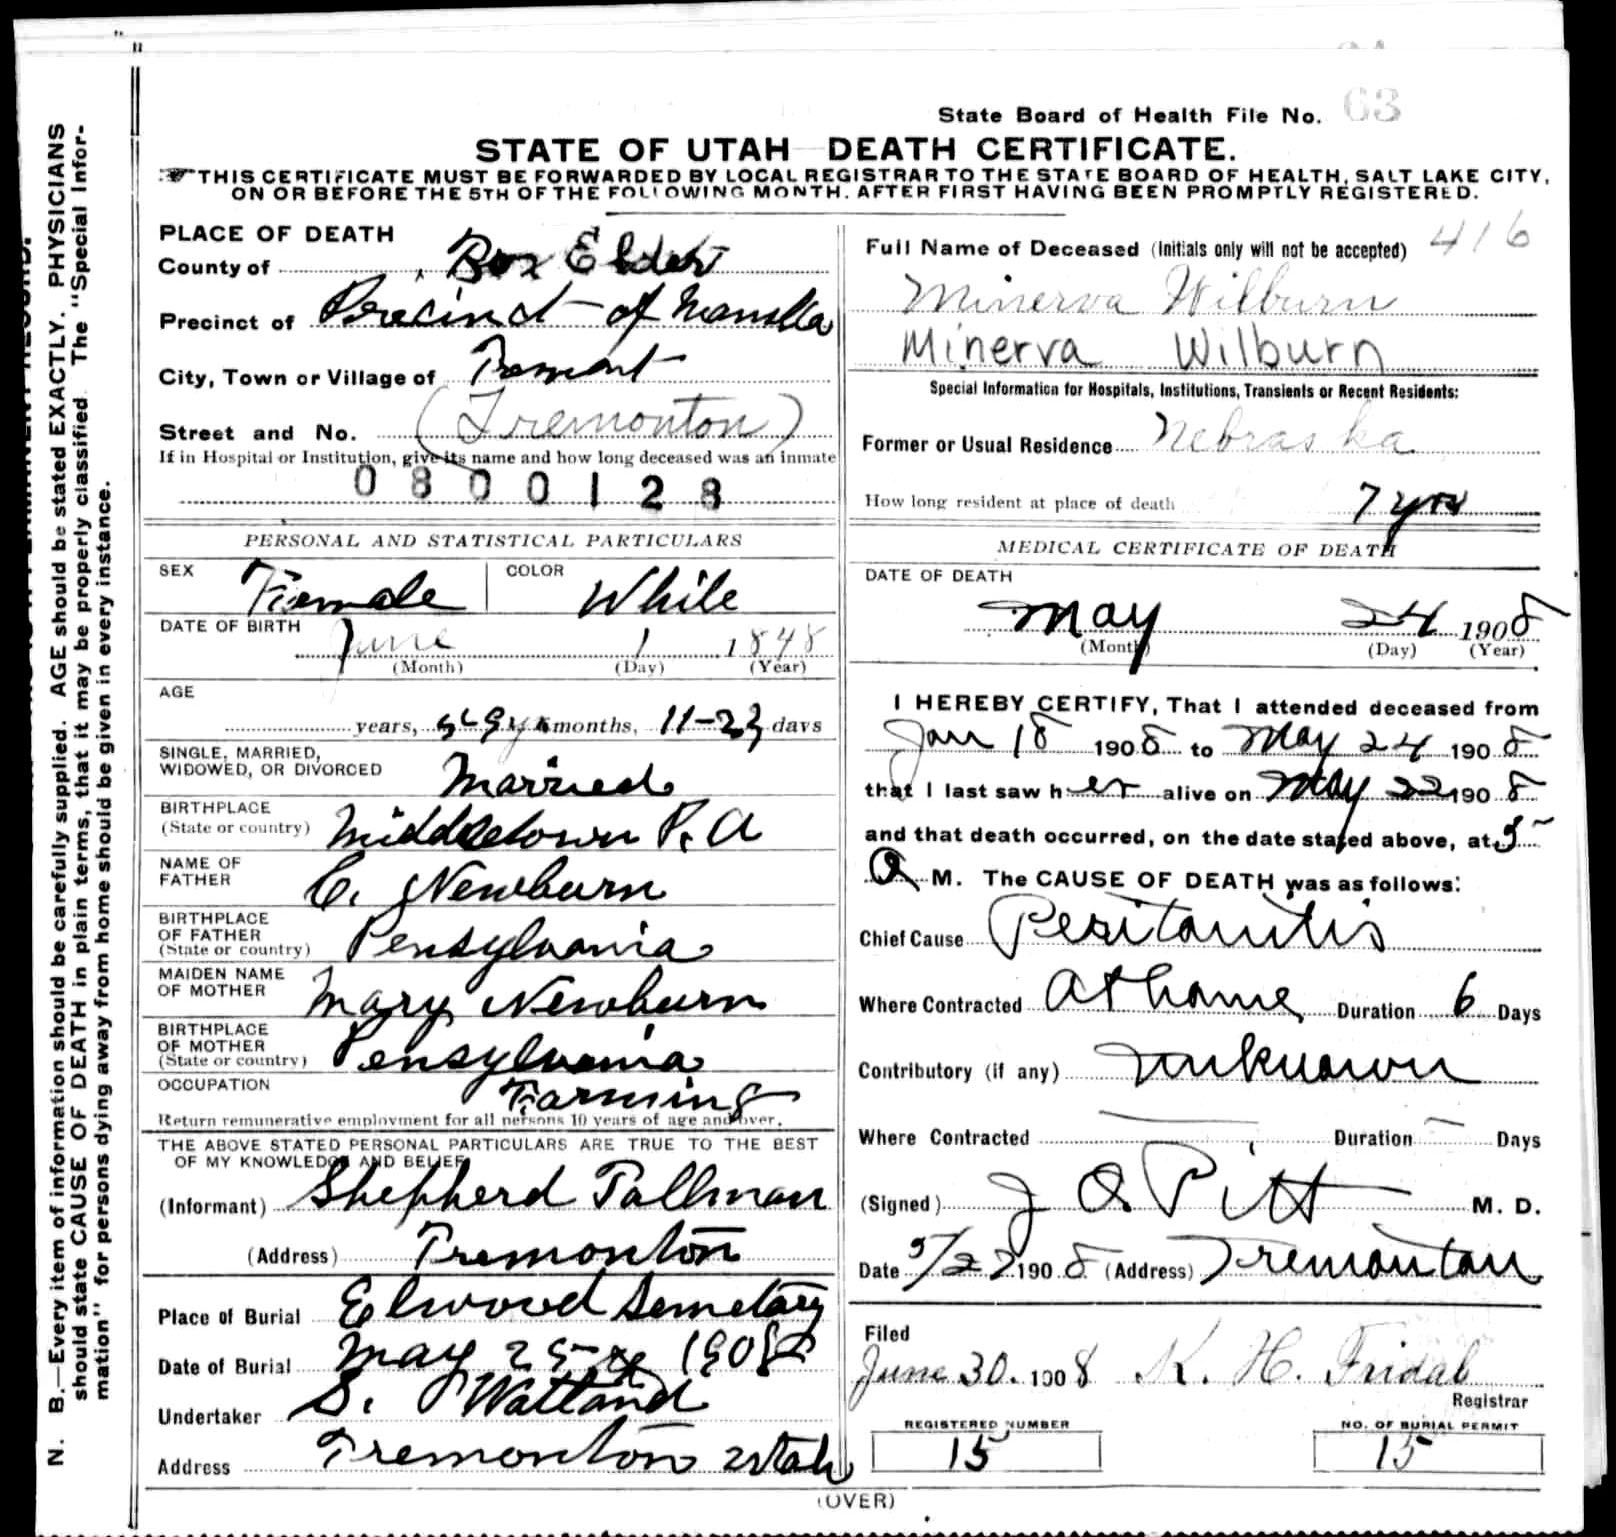 State Board of Health File No. 63
STATE OF UTAH DEATH CERTIFICATE.
THIS CERTIFICATE MUST BE FORWARDED BY LOCAL REGISTRAR TO THE STATE BOARD OF HEALTH, SALT LAKE CITY,
ON OR BEFORE THE 5TH OF THE FOLLOWING MONTH. AFTER FIRST HAVING BEEN PROMPTLY REGISTERED.
N. B.—Every item of information should be carefully supplied. AGE should be stated EXACTLY. PHYSICIANS
should state CAUSE OF DEATH in plain terms, that it may be properly classified. The "Special Infor-
mation" for persons dying away from home should be given in every instance.
PLACE OF DEATH
County of Box Elder
Precinct of Precinct of
City, Town or Village of Tremont
Street and No. (Tremonton)
If in Hospital or Institution, give its name and how long deceased was an inmate
0800128
PERSONAL AND STATISTICAL PARTICULARS
SEX Female COLOR White
DATE OF BIRTH June 1 1848
(Month) (Day) (Year)
AGE
years, months, 11-23 days
SINGLE, MARRIED,
WIDOWED, OR DIVORCED Married
BIRTHPLACE
(State or country) Middletown P.A
NAME OF
FATHER C. Newburn
BIRTHPLACE
OF FATHER
(State or country) Pensylvania
MAIDEN NAME
OF MOTHER Mary Newburn
BIRTHPLACE
OF MOTHER
(State or country) Pensylvania
OCCUPATION Farming
Return remunerative employment for all persons 10 years of age and over.
THE ABOVE STATED PERSONAL PARTICULARS ARE TRUE TO THE BEST
OF MY KNOWLEDGE AND BELIEF
(Informant) Shepherd Tallman
(Address) Tremonton
Place of Burial Elwood Semetary
Date of Burial May 25 1908
Undertaker S. Watland
Address Tremonton Utah
Full Name of Deceased (Initials only will not be accepted) 416
Minerva Wilburn
Minerva Wilburn
Special Information for Hospitals, Institutions, Transients or Recent Residents:
Former or Usual Residence Nebraska
How long resident at place of death 7 yrs
MEDICAL CERTIFICATE OF DEATH
DATE OF DEATH
May 24 1908
(Month) (Day) (Year)
I HEREBY CERTIFY, That I attended deceased from
Jan 18 1908 to May 24 1908
that I last saw her alive on May 22 1908
and that death occurred, on the date stated above, at 5
A M. The CAUSE OF DEATH was as follows:
Chief Cause Peritonitis
Where Contracted At home Duration 6 Days
Contributory (if any) unknown
Where Contracted Duration Days
(Signed) J O Pitt M. D.
Date 5/27 1908 (Address) Tremonton
Filed
June 30. 1908 K. H. Fridal
Registrar
REGISTERED NUMBER NO. OF BURIAL PERMIT
15 15
(OVER)